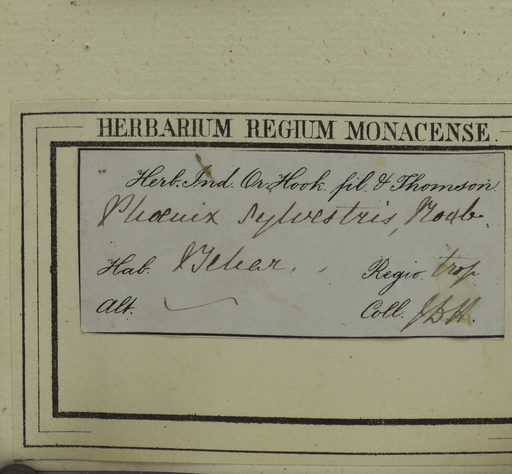 HERBARIUM REGIUM MONACENSE.
Herb. Ind. Or. Hook. fil. & Thomson.
Phoenix sylvestris, Roxb.
Hab. Behar. Regio trop
Alt. Coll. JDH.